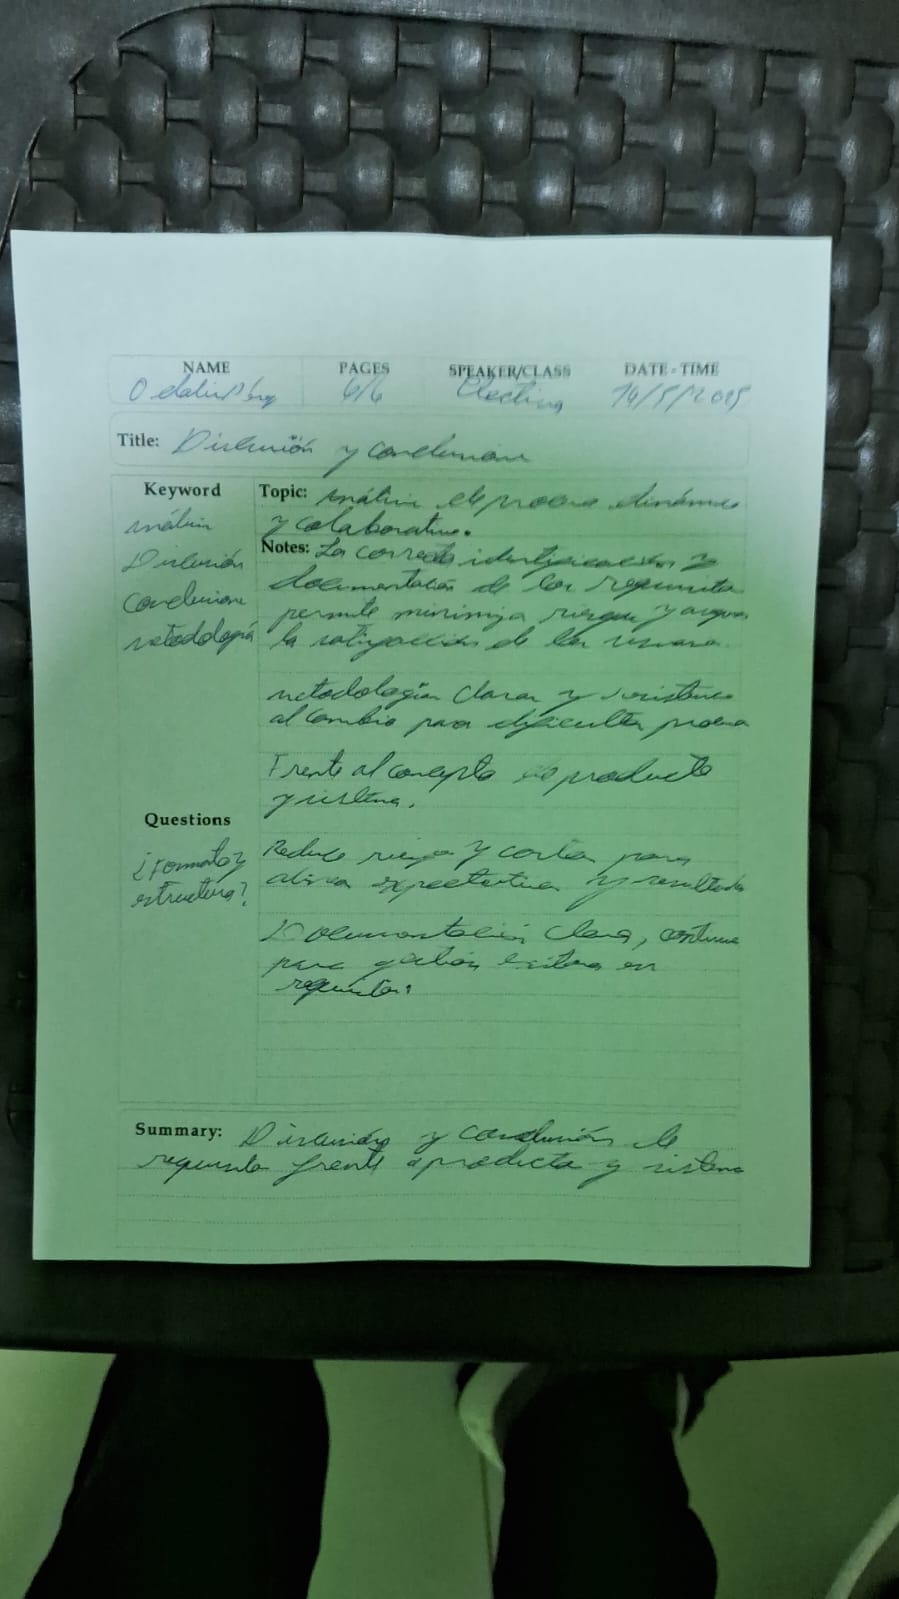 NAME PAGES SPEAKER/CLASS DATE - TIME
6/6 Electiva 14/5/2025
Title: Discusión y conclusiones
Keyword
Topic: Análisis de proceso dinámico
y colaborativo.
análisis
Discusión
Conclusiones
metodología
Notes: La correcta identificación y
documentación de los requisitos
permite minimiza riesgos y
la satisfacción de los usuarios
metodologías claras y resistencia
al cambio para dificulta proceso
Frente al concepto de producto
y sistema.
Questions
¿Formato y
estructura?
Reduce riesgo y costos para
alinea expectativas y resultados
Documentación clara, continua
para gestión exitosa en
requisitos.
Summary: Discusión y conclusión de
requisitos frente a producto y sistema